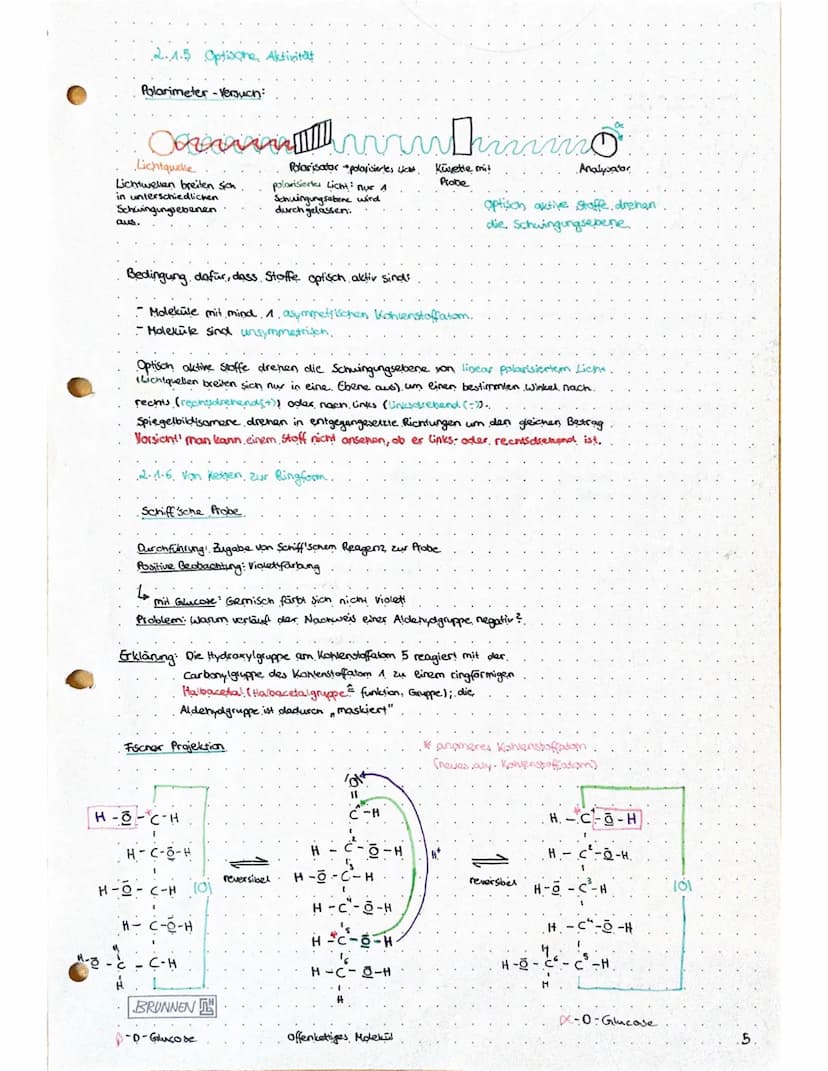 2.1.5 Optische Aktivität
Polarimeter - Versuch:
α
Lichtquelle
Polarisator → polarisiertes Licht
Küvette mit
Probe
Analysator
Lichtwellen breiten sich
in unterschiedlichen
Schwingungsebenen
aus.
polarisiertes Licht: nur 1
Schwingungsebene wird
durchgelassen.
Optisch aktive Stoffe drehen
die Schwingungsebene
Bedingung dafür, dass Stoffe optisch aktiv sind:
- Moleküle mit mind. 1 asymmetrischen Kohlenstoffatom.
- Moleküle sind unsymmetrisch.
Optisch aktive Stoffe drehen die Schwingungsebene von linear polarisiertem Licht
(Lichtquellen breiten sich nur in eine Ebene aus) um einen bestimmten Winkel nach
rechts (rechtsdrehend (+)) oder nach links (linksdrehend (-)).
Spiegelbildisomere drehen in entgegengesetzte Richtungen um den gleichen Betrag
Vorsicht! man kann einem Stoff nicht ansehen, ob er links- oder rechtsdrehend ist.
2.1.6 Von Ketten zur Ringform
Schiff'sche Probe
Durchführung: Zugabe von Schiff'schem Reagenz zur Probe
Positive Beobachtung: Violettfärbung
↳ mit Glucose: Gemisch färbt sich nicht violett
Problem: Warum verläuft der Nachweis einer Aldehydgruppe negativ?
Erklärung: Die Hydroxylgruppe am Kohlenstoffatom 5 reagiert mit der
Carbonylgruppe des Kohlenstoffatom 1 zu einem ringförmigen
Halbacetal (Halbacetalgruppe ≙ funktion. Gruppe); die
Aldehydgruppe ist dadurch „maskiert"
Fischer Projektion
* anomeres Kohlenstoffatom
(neues asy. Kohlenstoffatom)
H - O - *C - H
H - C - O - H
H - O - C - H |O|
H - C - O - H
H
H - O - C - C - H
H
BRUNNEN
β - D - Glucose
reversibel
|O|
C¹ - H
H - C² - O - H
H - O - C³ - H
H - C⁴ - O - H
H - *C⁵ - O - H
H - C⁶ - O - H
H
H⁺
Offenkettiges Molekül
reversibel
H - *C¹ - O - H
H - C² - O - H
H - O - C³ - H |O|
H - C⁴ - O - H
H
H - O - C⁶ - C⁵ - H
H
α - D - Glucose
5